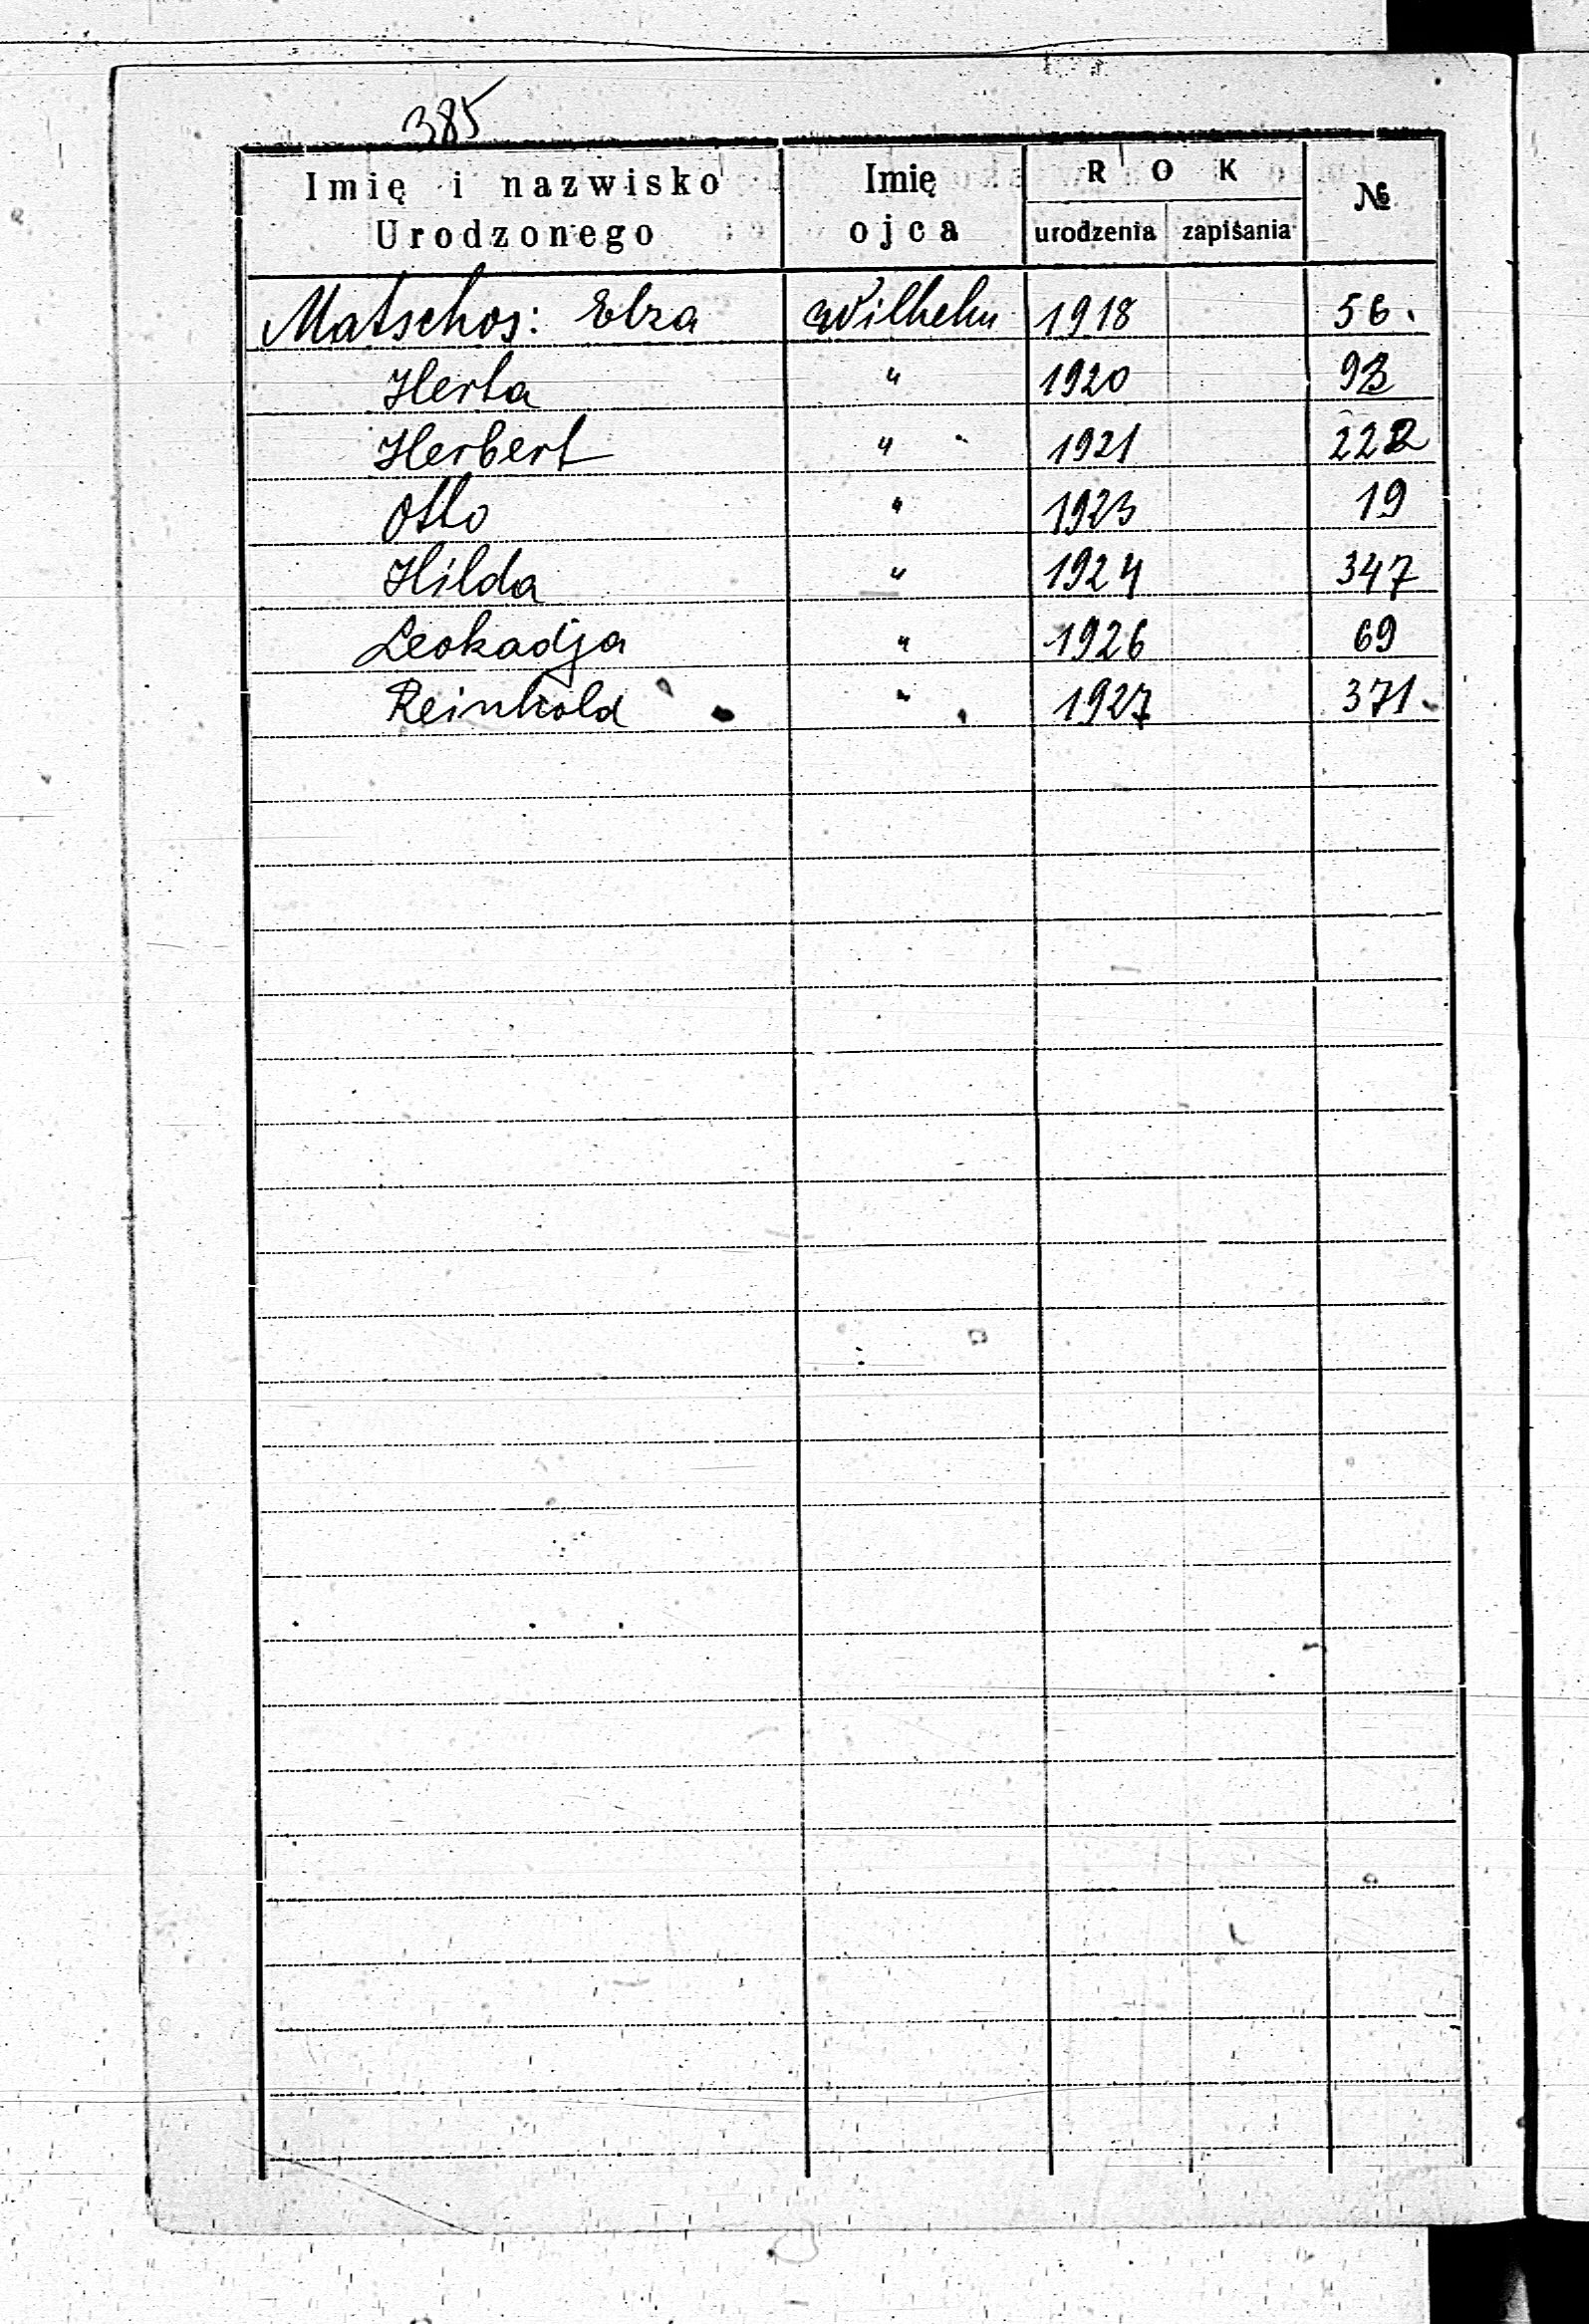 385
Imię i nazwisko Urodzonego Imię ojca ROK urodzenia zapisania №
Matschos: Elza Wilhelm 1918 56.
Herta " 1920 93
Herbert " 1921 222
Otto " 1923 19
Hilda " 1924 347
Leokadja " 1926 69
Reinhold " 1927 371.